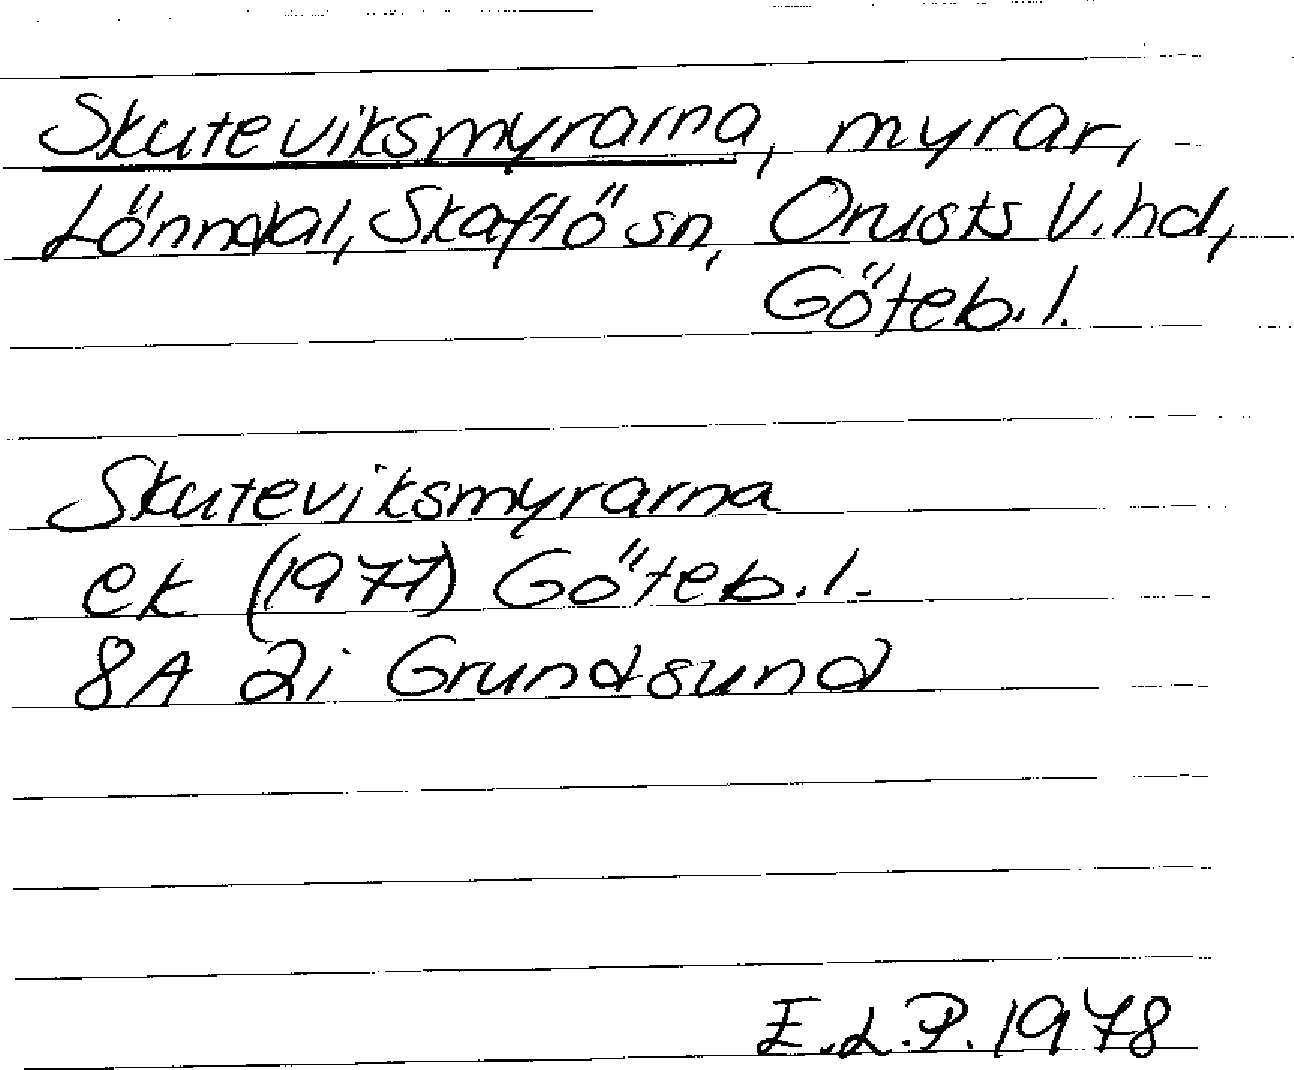 Skuteviksmyrarna, myrar,
Lönndal, Skaftö sn, Orusts V. hd,
Göteb. l.
Skuteviksmyrarna
ek (1977) Göteb. l.
8A 2i Grundsund
E.L.P. 1978